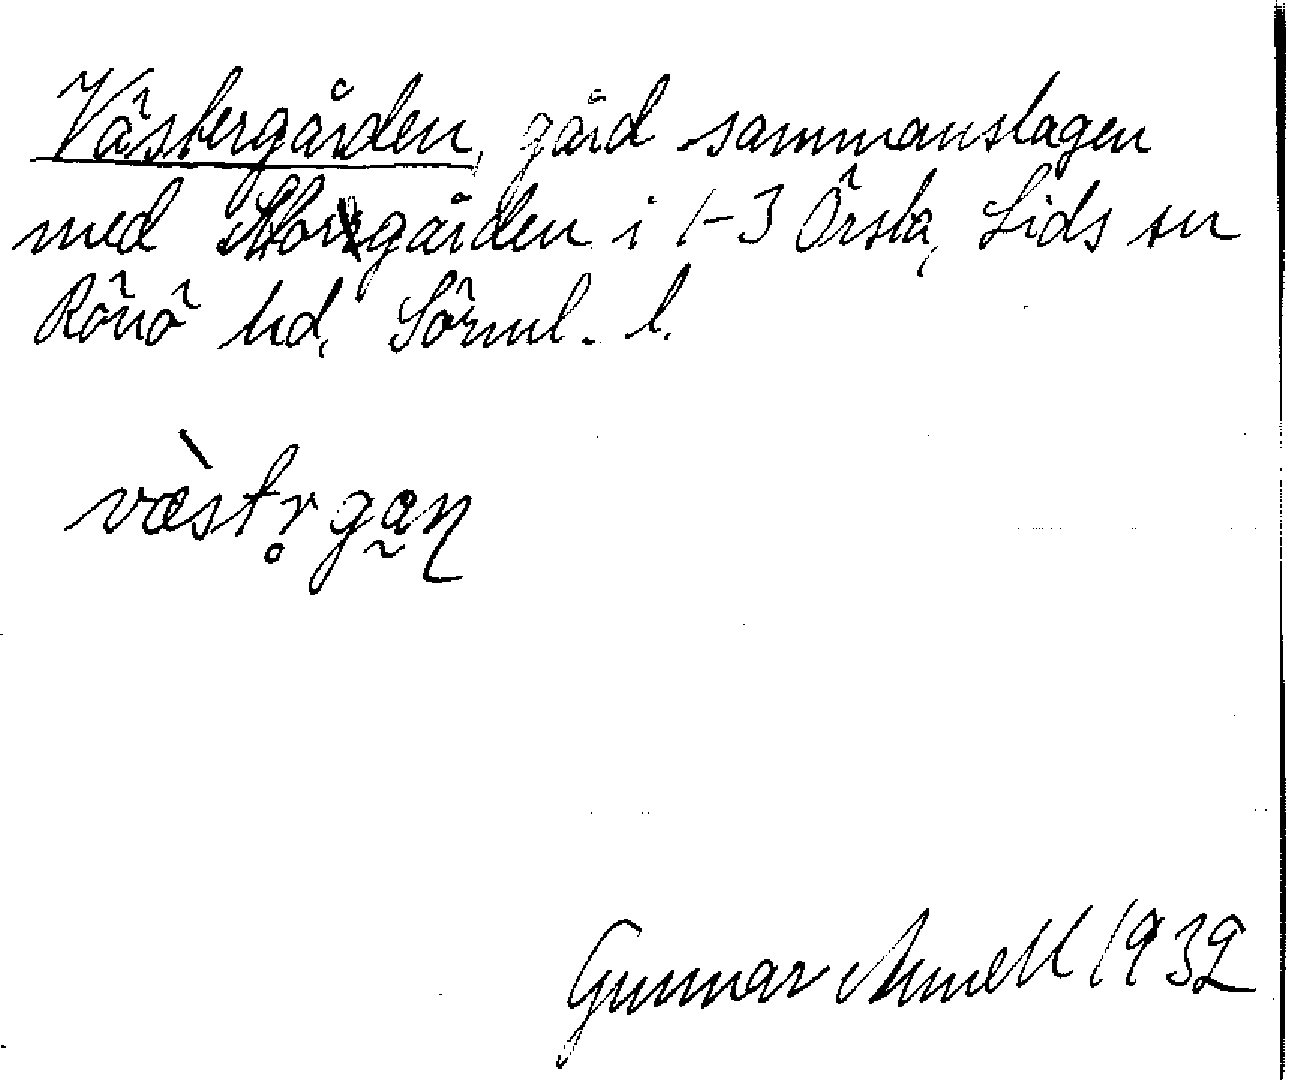 Västergården, gård sammanslagen
med Storgården i 1-3 Örsta, Lids sn
Rönö hd, Sörml. l.
væ̀str̥ga̰ɳ
Gunnar 1932